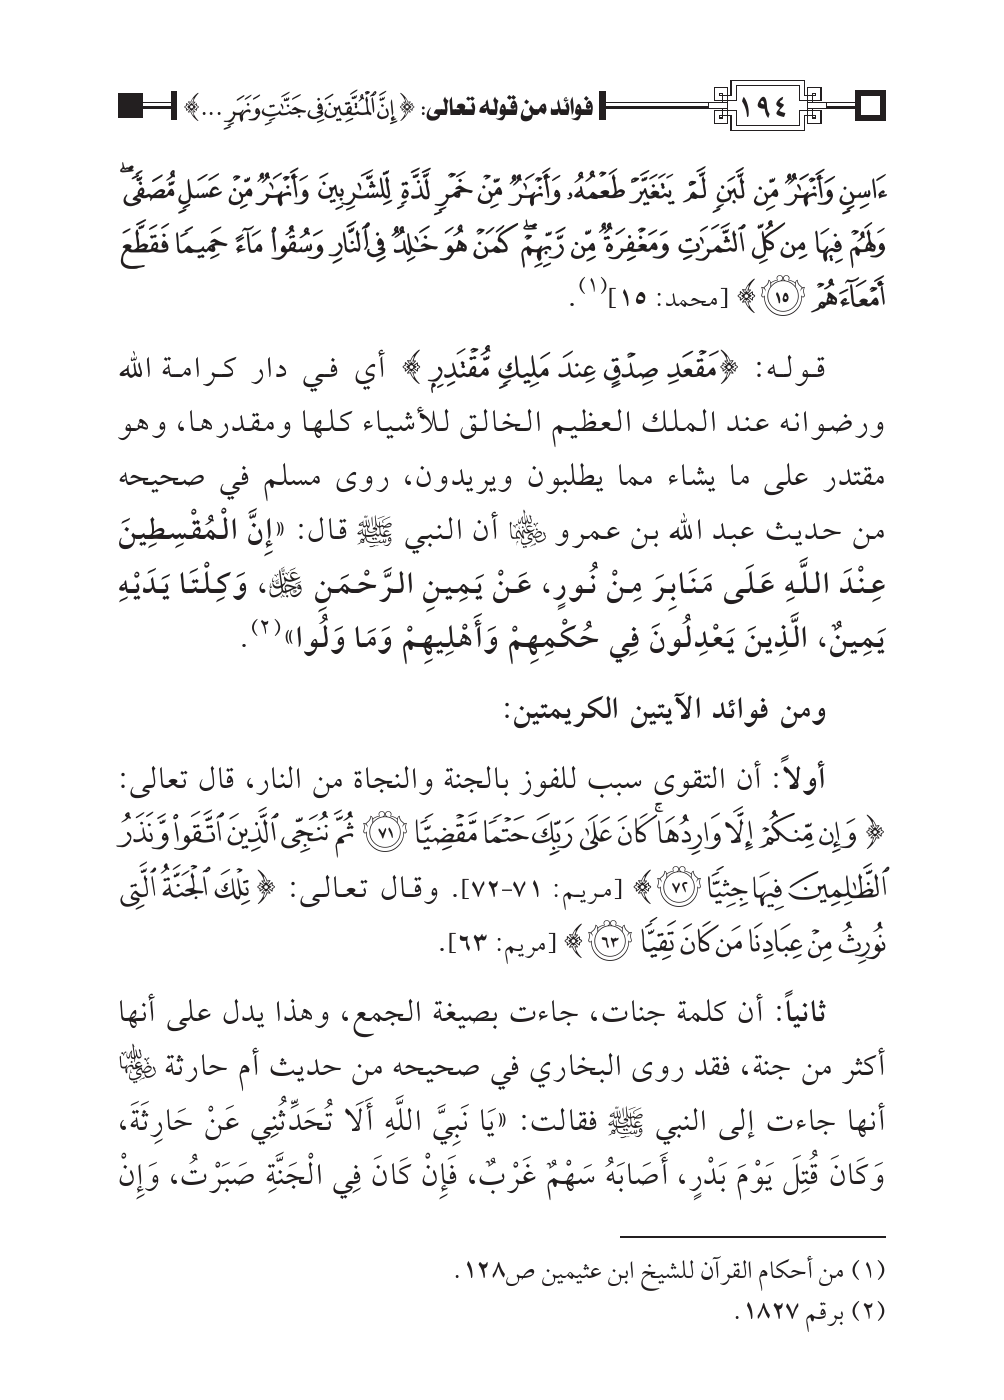 ١٩٤ فوائد من قوله تعالى: ﴿إِنَّ ٱلْمُتَّقِينَ فِى جَنَّٰتٍ وَنَهَرٍ ...﴾
ءَاسِنٍ وَأَنْهَٰرٌ مِّن لَّبَنٍ لَّمْ يَتَغَيَّرْ طَعْمُهُۥ وَأَنْهَٰرٌ مِّنْ خَمْرٍ لَّذَّةٍ لِّلشَّٰرِبِينَ وَأَنْهَٰرٌ مِّنْ عَسَلٍ مُّصَفًّى ۖ
وَلَهُمْ فِيهَا مِن كُلِّ ٱلثَّمَرَٰتِ وَمَغْفِرَةٌ مِّن رَّبِّهِمْ ۖ كَمَنْ هُوَ خَٰلِدٌ فِى ٱلنَّارِ وَسُقُوا۟ مَآءً حَمِيمًا فَقَطَّعَ
أَمْعَآءَهُمْ ١٥﴾ [محمد: ١٥](١).
قوله: ﴿مَقْعَدِ صِدْقٍ عِندَ مَلِيكٍ مُّقْتَدِرٍ﴾ أي في دار كرامة الله
ورضوانه عند الملك العظيم الخالق للأشياء كلها ومقدرها، وهو
مقتدر على ما يشاء مما يطلبون ويريدون، روى مسلم في صحيحه
من حديث عبد الله بن عمرو رضي الله عنهما أن النبي ﷺ قال: «إِنَّ الْمُقْسِطِينَ
عِنْدَ اللَّهِ عَلَى مَنَابِرَ مِنْ نُورٍ، عَنْ يَمِينِ الرَّحْمَنِ عَزَّ وَجَلَّ، وَكِلْتَا يَدَيْهِ
يَمِينٌ، الَّذِينَ يَعْدِلُونَ فِي حُكْمِهِمْ وَأَهْلِيهِمْ وَمَا وَلُوا»(٢).
ومن فوائد الآيتين الكريمتين:
أولاً: أن التقوى سبب للفوز بالجنة والنجاة من النار، قال تعالى:
﴿وَإِن مِّنكُمْ إِلَّا وَارِدُهَا ۚ كَانَ عَلَىٰ رَبِّكَ حَتْمًا مَّقْضِيًّا ٧١ ثُمَّ نُنَجِّى ٱلَّذِينَ ٱتَّقَوا۟ وَّنَذَرُ
ٱلظَّٰلِمِينَ فِيهَا جِثِيًّا ٧٢﴾ [مريم: ٧١-٧٢]. وقال تعالى: ﴿تِلْكَ ٱلْجَنَّةُ ٱلَّتِى
نُورِثُ مِنْ عِبَادِنَا مَن كَانَ تَقِيًّا ٦٣﴾ [مريم: ٦٣].
ثانياً: أن كلمة جنات، جاءت بصيغة الجمع، وهذا يدل على أنها
أكثر من جنة، فقد روى البخاري في صحيحه من حديث أم حارثة رضي الله عنها
أنها جاءت إلى النبي ﷺ فقالت: «يَا نَبِيَّ اللَّهِ أَلَا تُحَدِّثُنِي عَنْ حَارِثَةَ،
وَكَانَ قُتِلَ يَوْمَ بَدْرٍ، أَصَابَهُ سَهْمٌ غَرْبٌ، فَإِنْ كَانَ فِي الْجَنَّةِ صَبَرْتُ، وَإِنْ
(١) من أحكام القرآن للشيخ ابن عثيمين ص١٢٨.
(٢) برقم ١٨٢٧.